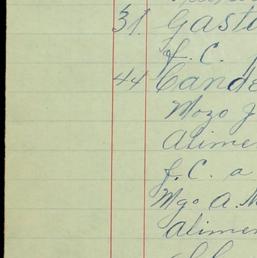 31 Gasto
J. C.
44 Cande
Mozo J
Alime
J. C. a
Mgo A. M
Alimen